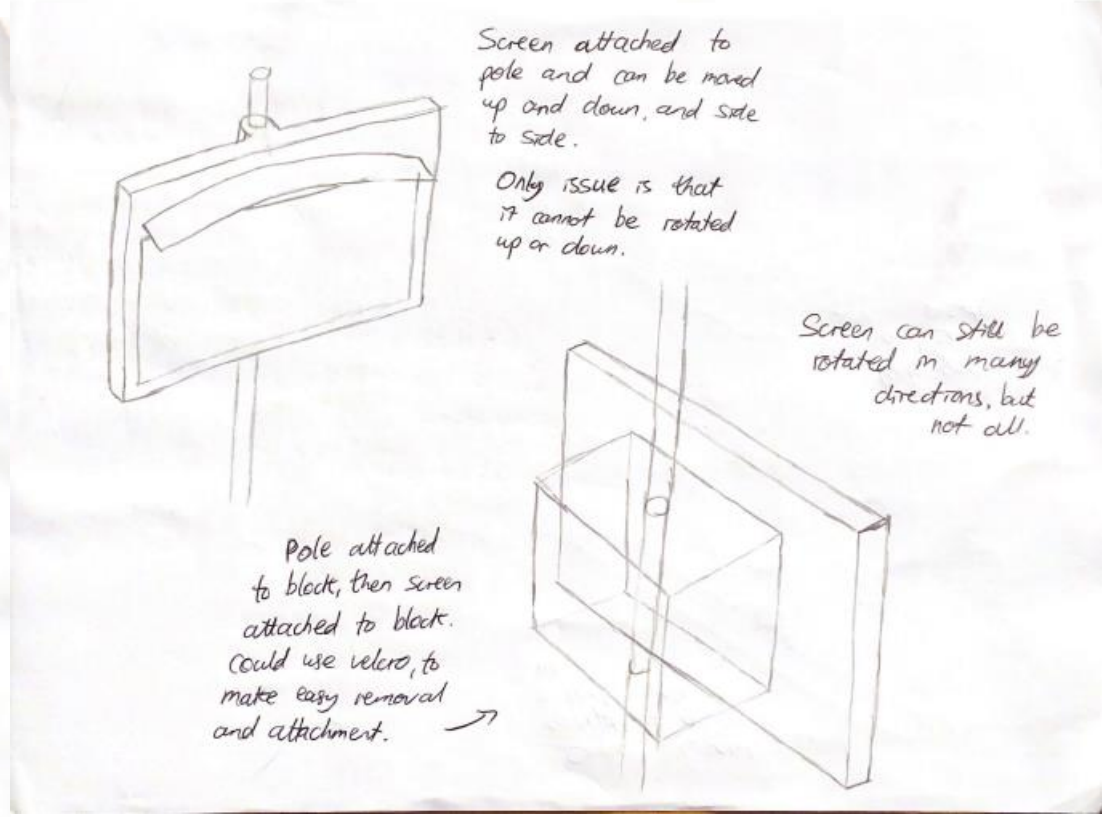 Screen attached to
pole and can be moved
up and down, and side
to side.
Only issue is that
it cannot be rotated
up or down.
Screen can still be
rotated in many
directions, but
not all.
Pole attached
to block, then screen
attached to block.
Could use velcro, to
make easy removal
and attachment.